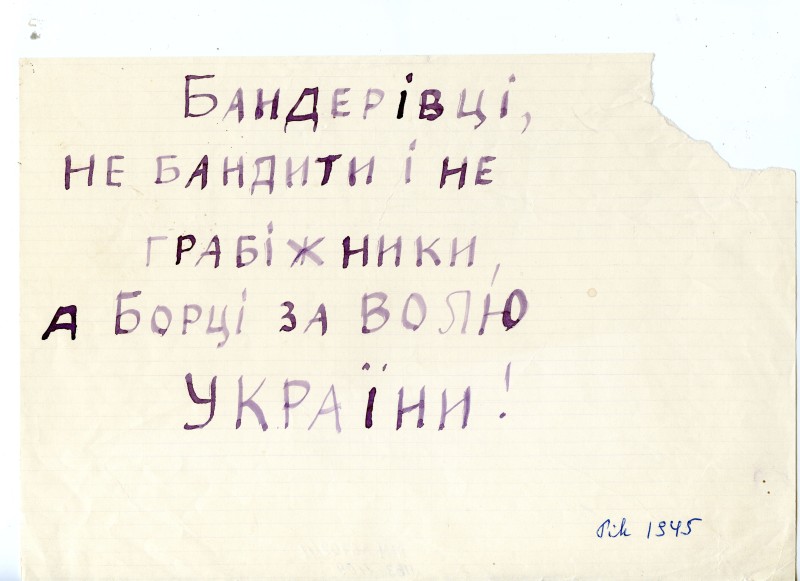 Бандерівці,
не бандити і не
грабіжники,
а Борці за волю
України!
Рік 1945